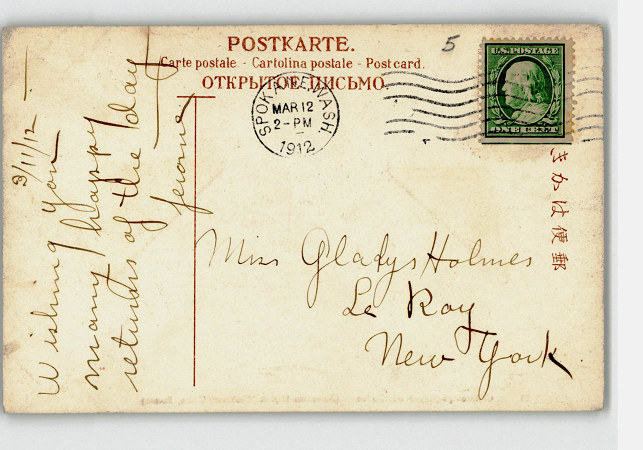 POSTKARTE.
Carte postale - Cartolina postale - Post card.
ОТКРЫТОЕ ПИСЬМО.
5
SPOKANE, WASH.
MAR 12
2-PM
1912
U.S. POSTAGE
ONE CENT
きかは便郵
3/11/12 —
Wishing you
many happy
returns of the day
Jerome
Miss Gladys Holmes
Le Roy
New York.